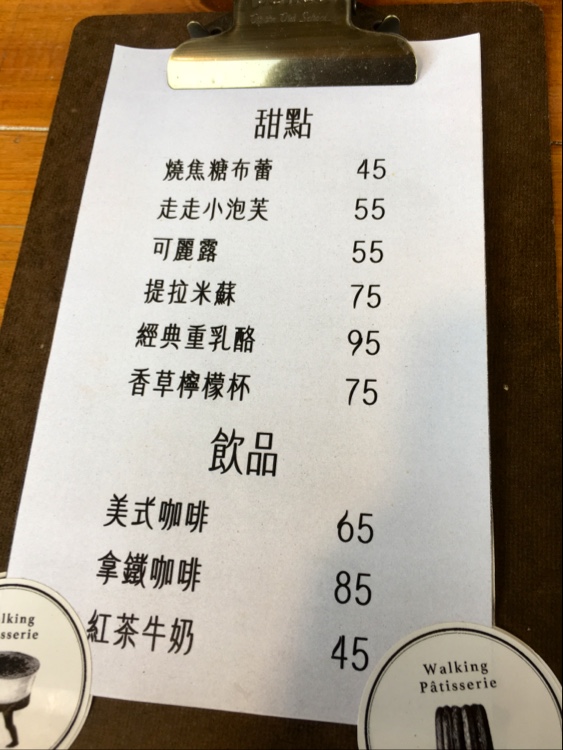 甜點
燒焦糖布蕾 45
走走小泡芙 55
可麗露 55
提拉米蘇 75
經典重乳酪 95
香草檸檬杯 75
飲品
美式咖啡 65
拿鐵咖啡 85
紅茶牛奶 45
Walking
Pâtisserie